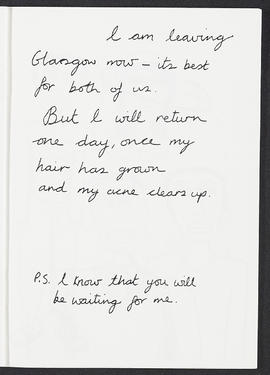 I am leaving
Glasgow now – its best
for both of us.
But I will return
one day, once my
hair has grown
and my acne clears up.
P.S. I know that you will
be waiting for me.